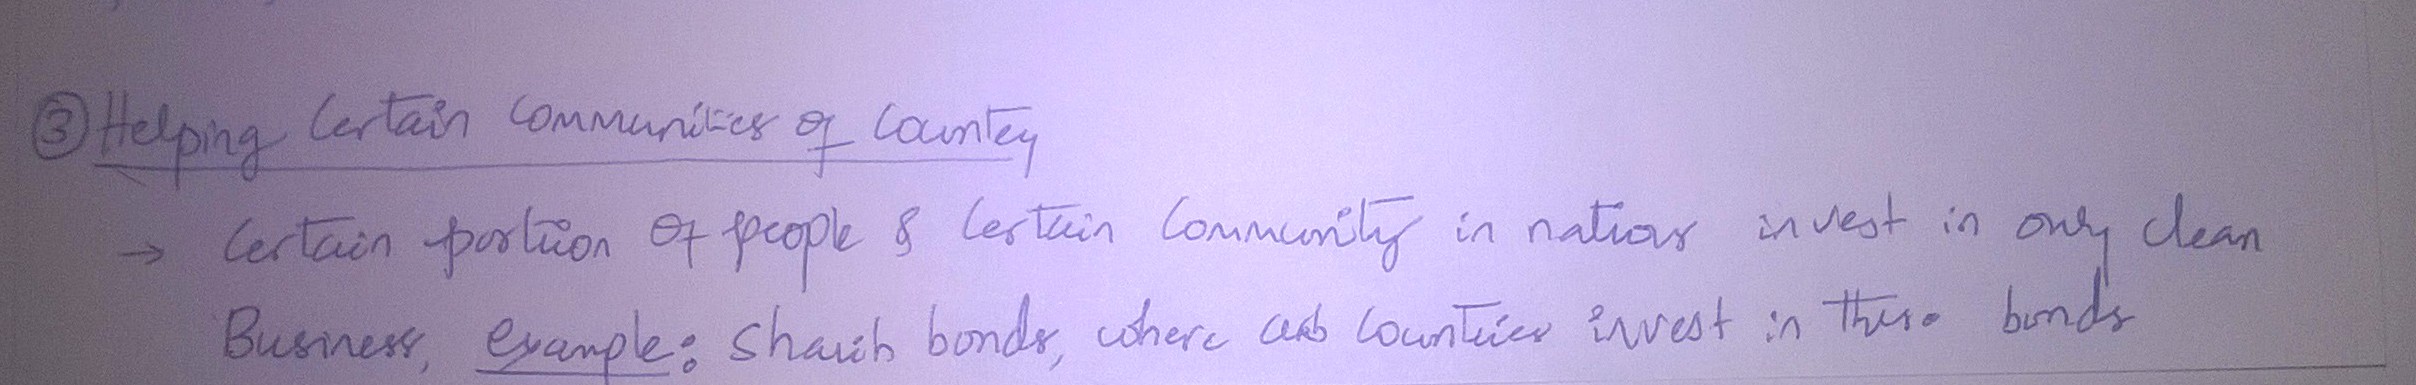 ③ Helping Certain Communities of Country
→ Certain portion of people & Certain Community in nations invest in only clean
Business, example: Shariah bonds, where arab Countries invest in these bonds